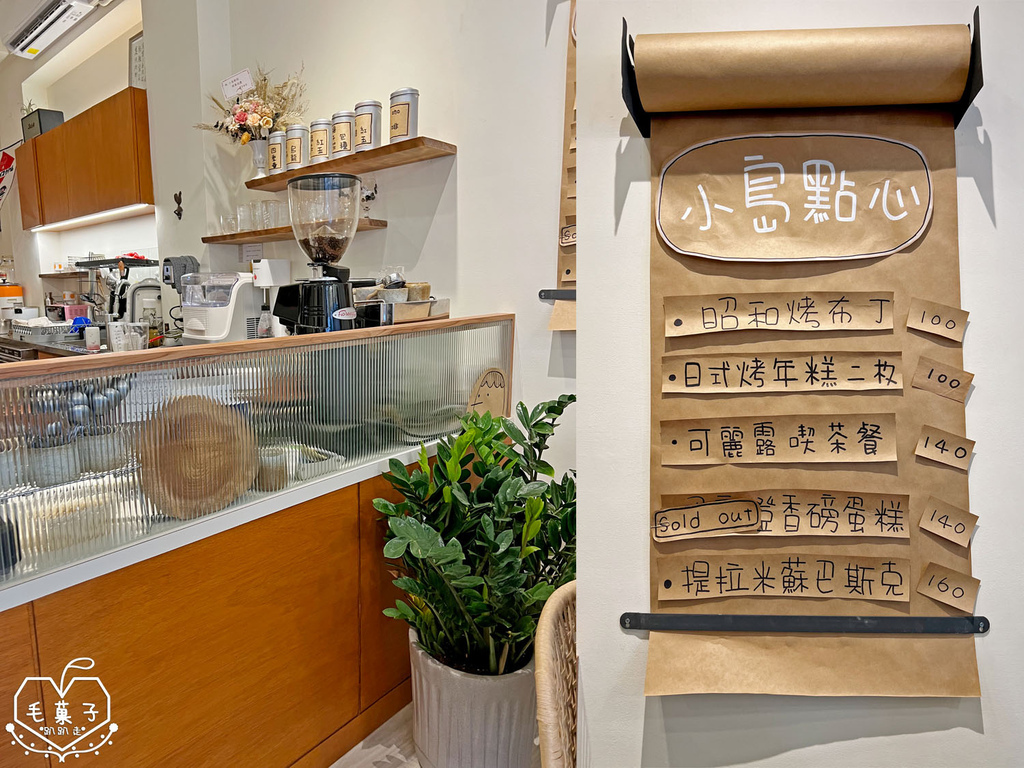 咖啡
紅玉
小島點心
•昭和烤布丁 100
•日式烤年糕二枚 100
•可麗露喫茶餐 140
Sold out 橙香磅蛋糕 140
•提拉米蘇巴斯克 160
毛菓子
趴趴走